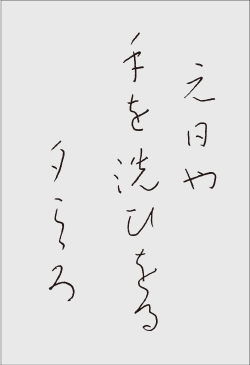 元日や
手を洗ひをる
夕ごころ